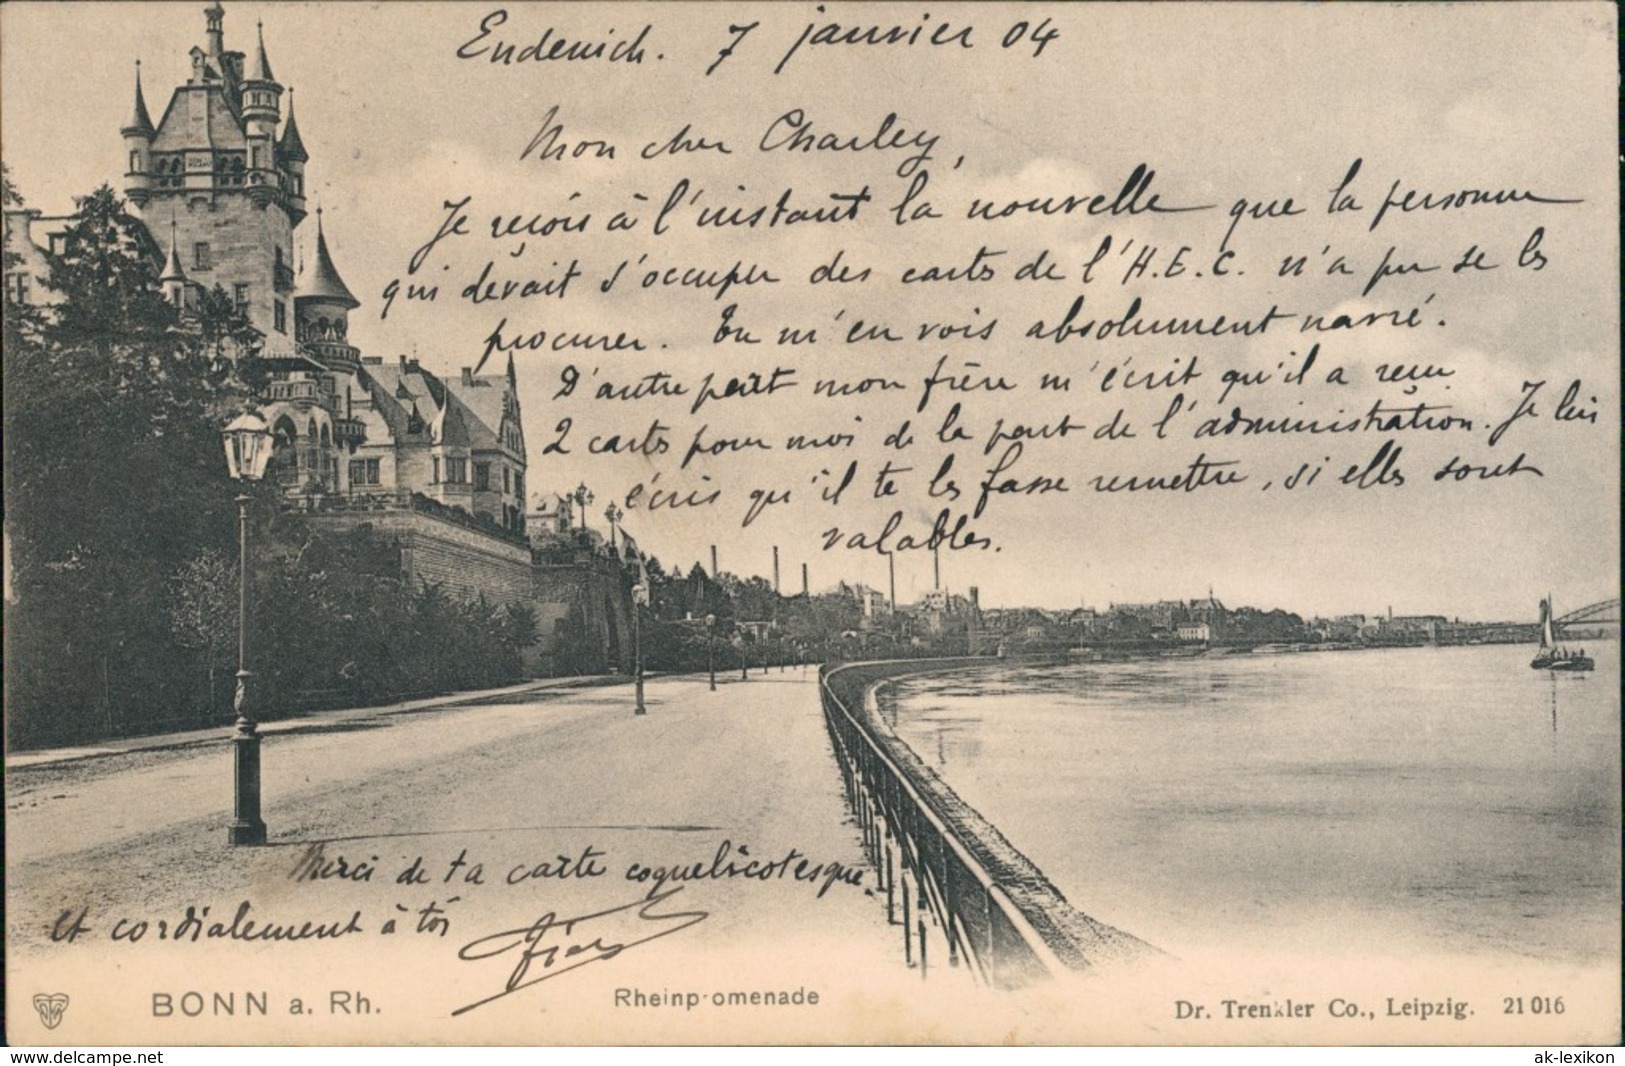 Endenich. 7 janvier 04
Mon cher Charley,
Je reçois à l'instant la nouvelle que la personne
qui devait s'occuper des cartes de l'H.E.C. n'a pu se les
procurer. Tu m'en vois absolument navré.
D'autre part mon frère m'écrit qu'il a reçu
2 cartes pour moi de la part de l'administration. Je lui
écris qu'il te les fasse remettre, si elles sont
valables.
Merci de ta carte coquelicotesque.
et cordialement à toi
BONN a. Rh.
Rheinpromenade
Dr. Trenkler Co., Leipzig. 21 016
www.delcampe.net
ak-lexikon